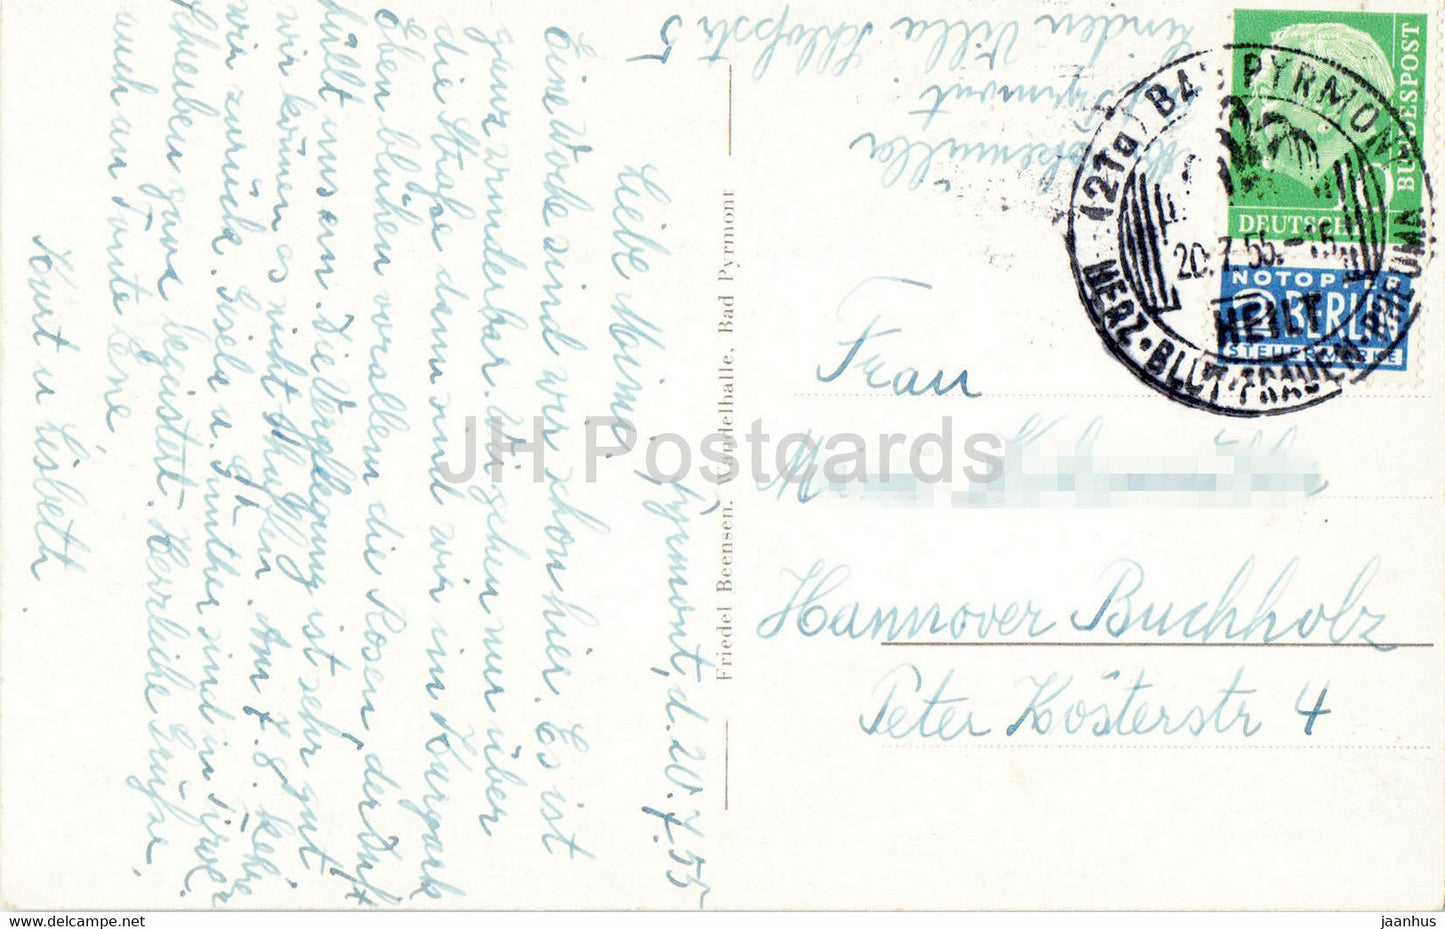 Pyrmont, d. 20.7.55
Liebe Meima!
Eine Woche sind wir schon hier. Es ist
ganz wunderbar. Wir gehen nur über
die Straße dann sind wir im Kurpark
Eben blühn vorallem die Rosen, der Duft
hüllt uns ein. Die Verpflegung ist sehr gut
wir können es nicht schaffen. Am 7.8. kehren
wir zurück. Gisela u. Günther sind in Tyrol
schreiben ganz begeistert. Herzliche Grüße
auch an Tante Erne,
Kurt u Lisbeth.
Friedel Beensen. Wandelhalle, Bad Pyrmont
Pyrmont
Linden Villa Schloßstr 5
DEUTSCHE
BUNDESPOST
NOTOPFER
2 BERLIN
STEUERMARKE
(21a) BAD PYRMONT
20.7.55
HEILT
HERZ·BLUT·FRAUEN·RHEUMA
Frau
Hannover Buchholz
Peter Kösterstr 4
JH Postcards
jaanhus
www.delcampe.net